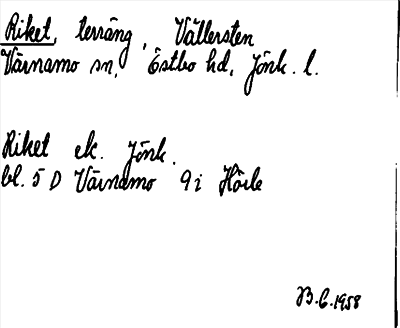 Riket, terräng, Vällersten
Värnamo sn, Östbo hd, Jönk. l.
Riket ek. Jönk.
bl. 5 D Värnamo 9 i Hörle
B.C. 1958